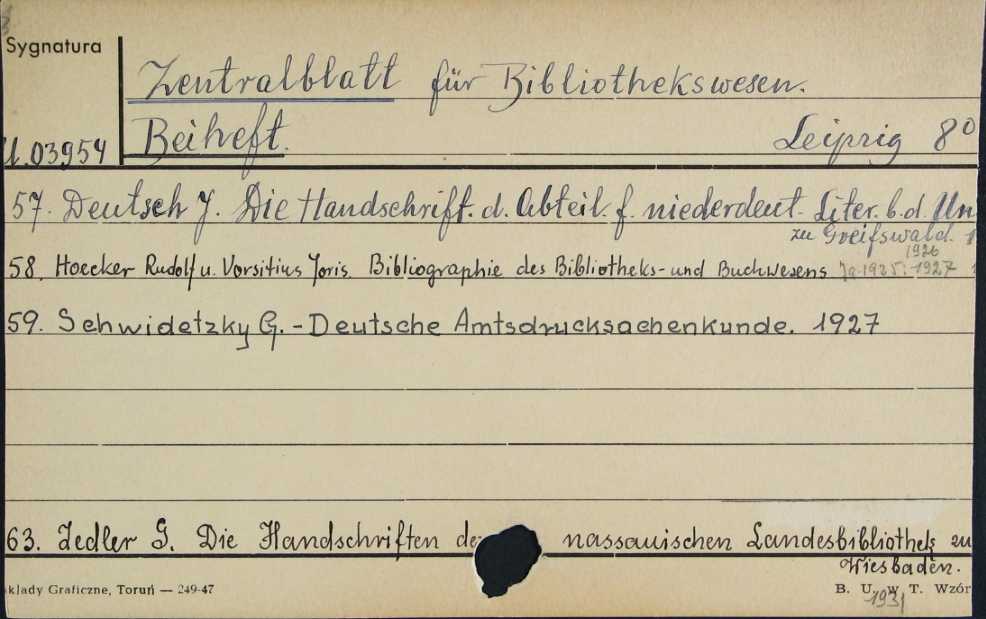 Sygnatura
Zentralblatt für Bibliothekswesen.
Beiheft. Leipzig 8°
U.03954
57. Deutsch J. Die Handschrift. d. Abteil. f. niederdeut. Liter. b. d. Un
zu Greifswald. 1
1926
58. Hoecker Rudolf u. Vorstius Joris. Bibliographie des Bibliotheks- und Buchwesens Jg. 1925: 1927
59. Schwidetzky G. - Deutsche Amtsdrucksachenkunde. 1927
63. Zedler G. Die Handschriften de nassauischen Landesbibliothek zu
Wiesbaden.
kłady Graficzne, Toruń — 249-47 B. U. w T. Wzór
1931